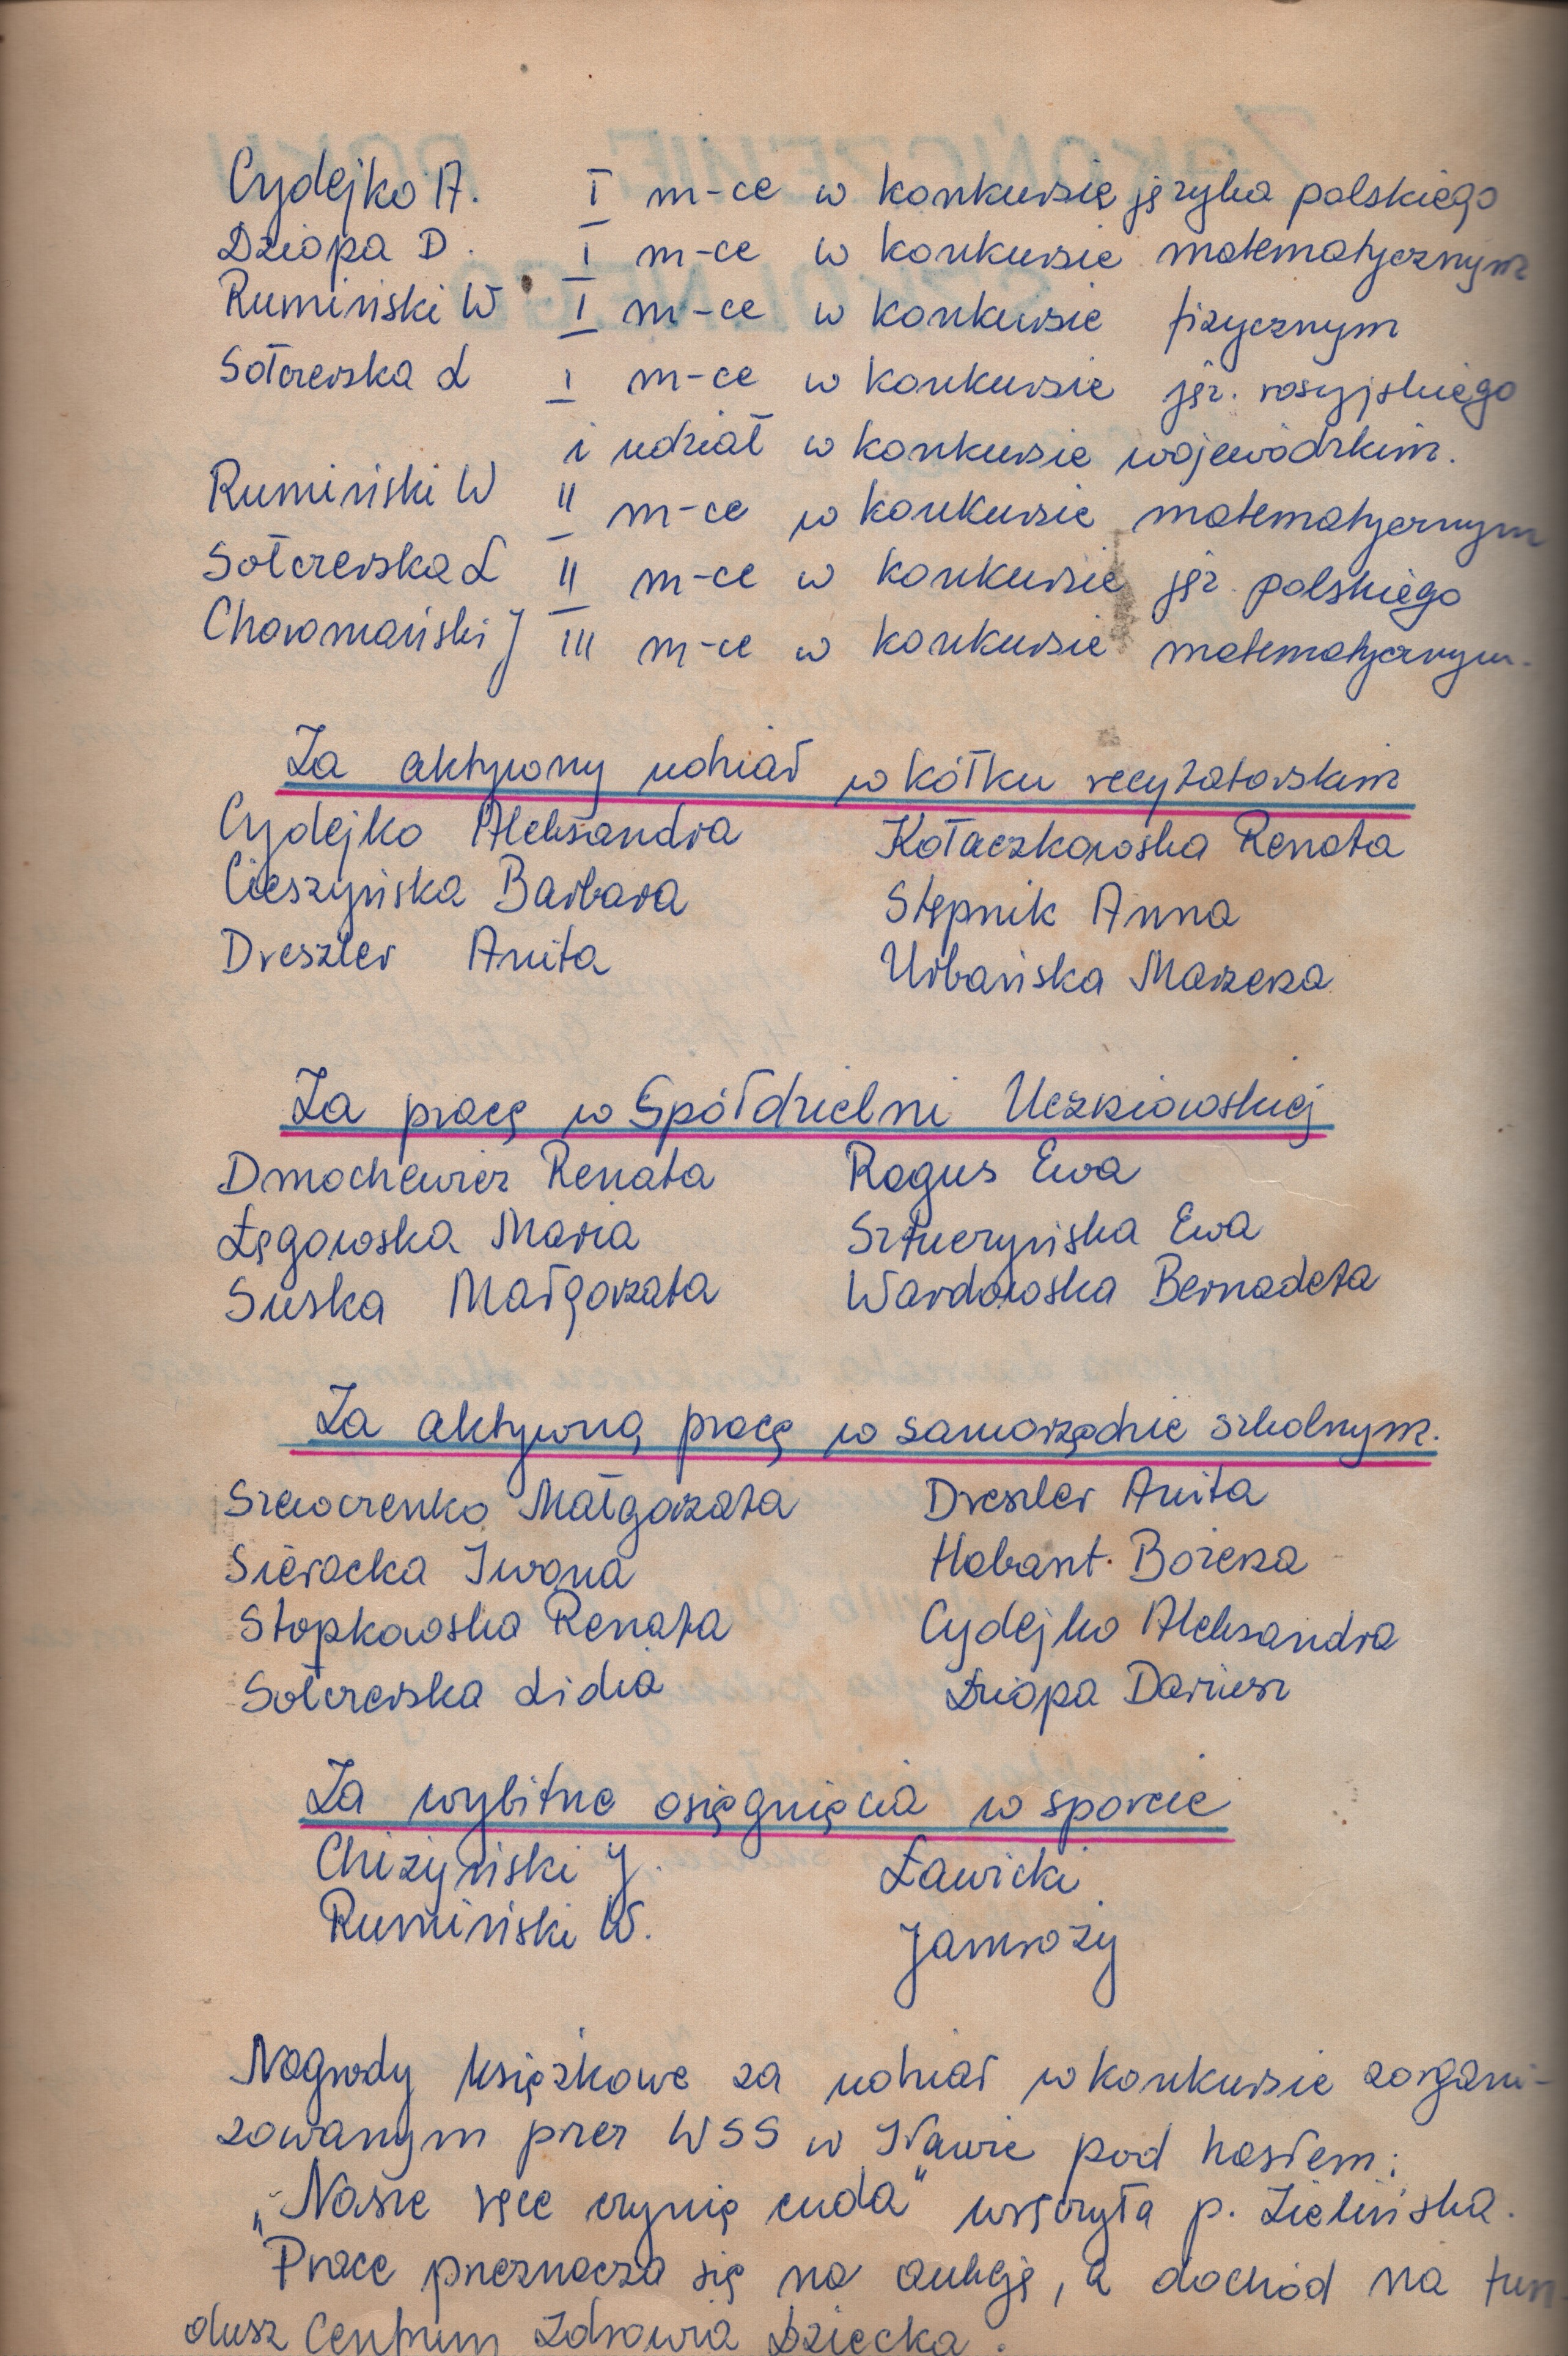 Cydejko A. I m-ce w konkursie języka polskiego
Dziopa D. I m-ce w konkursie matematycznym
Rumiński W I m-ce w konkursie fizycznym
Sołczewska L I m-ce w konkursie jęz. rosyjskiego
i udział w konkursie wojewódzkim.
Rumiński W II m-ce w konkursie matematycznym
Sołczewska L II m-ce w konkursie jęz. polskiego
Choromański J III m-ce w konkursie matematycznym.
Za aktywny udział w kółku recytatorskim
Cydejko Aleksandra Kołaczkowska Renata
Cieszyńska Barbara Stępnik Anna
Dreszler Anita Urbańska Marzena
Za pracę w Spółdzielni Uczniowskiej
Dmochewicz Renata Rogus Ewa
Łęgowska Maria Sztuczyńska Ewa
Suska Małgorzata Wardowska Bernadeta
Za aktywną pracę w samorządzie szkolnym.
Szewczenko Małgorzata Dreszler Anita
Sieracka Iwona Habant Bożena
Stopkowska Renata Cydejko Aleksandra
Sołczewska Lidia Dziopa Dariusz
Za wybitne osiągnięcia w sporcie
Chiżyński J. Ławicki
Rumiński W. Jamroży
Nagrody książkowe za udział w konkursie zorgani-
zowanym przez WSS w Iławie pod hasłem:
„Nasze ręce czynią cuda" wręczyła p. Zielińska.
Prace przeznacza się na aukcję, a dochód na fun-
dusz Centrum Zdrowia Dziecka.